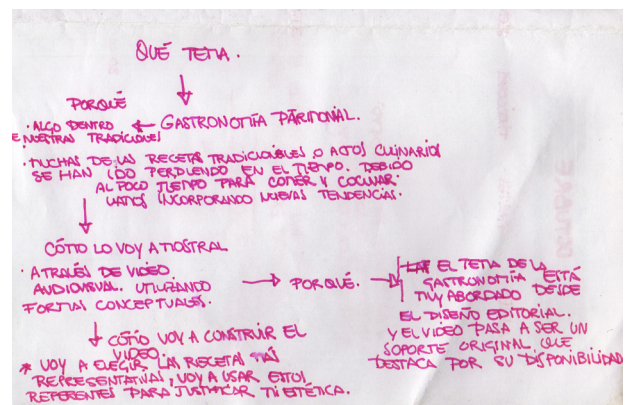 QUÉ TEMA.
PORQUÉ
GASTRONOMÍA PATRIMONIAL.
· ALGO DENTRO
E NUESTRAS TRADICIONES
· MUCHAS DE LAS RECETAS TRADICIONALES O ACTOS CULINARIOS
SE HAN IDO PERDIENDO EN EL TIEMPO. DEBIDO
AL POCO TIEMPO PARA COMER Y COCINAR.
VAMOS INCORPORANDO NUEVAS TENDENCIAS.
CÓMO LO VOY A MOSTRAR
· A TRAVÉS DE VIDEO
AUDIOVISUAL. UTILIZANDO
FORMAS CONCEPTUALES.
PORQUÉ.
EL TEMA DE LA
GASTRONOMÍA ESTÁ
MUY ABORDADO DESDE
EL DISEÑO EDITORIAL.
Y EL VIDEO PASA A SER UN
SOPORTE ORIGINAL, QUE
DESTACA POR SU DISPONIBILIDAD
CÓMO VOY A CONSTRUIR EL
VIDEO.
* VOY A ELEGIR LAS RECETAS MÁS
REPRESENTATIVAS, VOY A USAR ESTOS
REFERENTES PARA JUSTIFICAR MI ESTÉTICA.